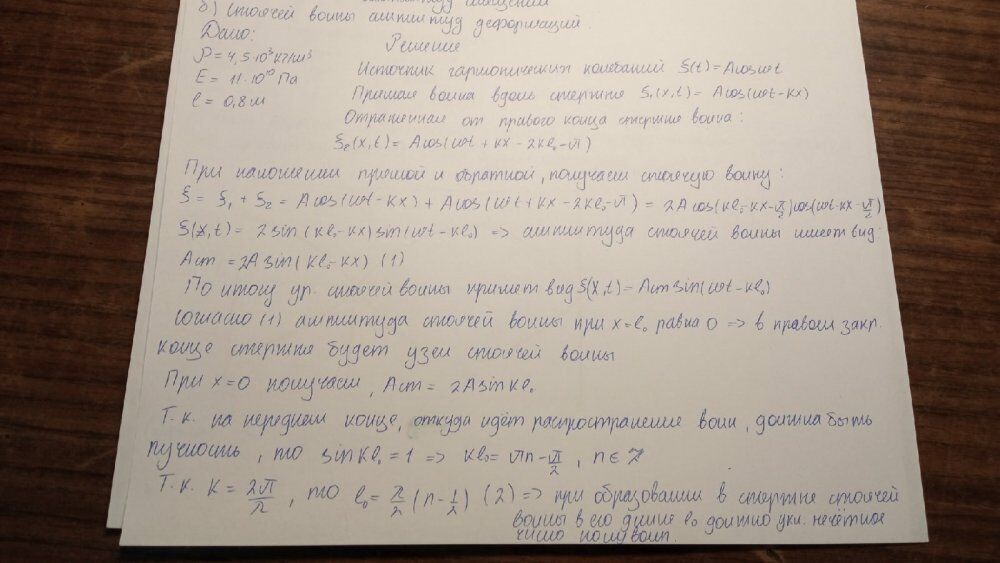 б) стоячей волны амплитуд деформаций.
Дано:
Решение
ρ = 4,5·10³ кг/м³
E = 11·10¹⁰ Па
l = 0,8 м
Источник гармонических колебаний ξ(t) = Acosωt
Прямая волна вдоль стержня ξ₁(x,t) = Acos(ωt-kx)
Отраженная от правого конца стержня волна:
ξ₂(x,t) = Acos(ωt + kx - 2kl₀ - π)
При наложении прямой и обратной, получаем стоячую волну:
ξ = ξ₁ + ξ₂ = Acos(ωt-kx) + Acos(ωt+kx-2kl₀-π) = 2Acos(kl₀-kx-π/2)cos(ωt-kx-π/2)
ξ(x,t) = 2sin(kl₀-kx)sin(ωt-kl₀) => амплитуда стоячей волны имеет вид:
Aст = 2Asin(kl₀-kx) (1)
По итогу ур. стоячей волны примет вид ξ(x,t) = Aст sin(ωt-kl₀)
Согласно (1) амплитуда стоячей волны при x=l₀ равна 0 => в правом закр.
конце стержня будет узел стоячей волны
При x=0 получаем, Aст = 2Asinkl₀
Т.к. на переднем конце, откуда идёт распространение волн, должна быть
пучность, то sinkl₀ = 1 => kl₀ = πn - π/2, n ∈ Z
Т.к. k = 2π/λ, то l₀ = λ/2 (n - 1/2) (2) => при образовании в стержне стоячей
волны в его длине l₀ должно укл. нечётное
число полуволн.